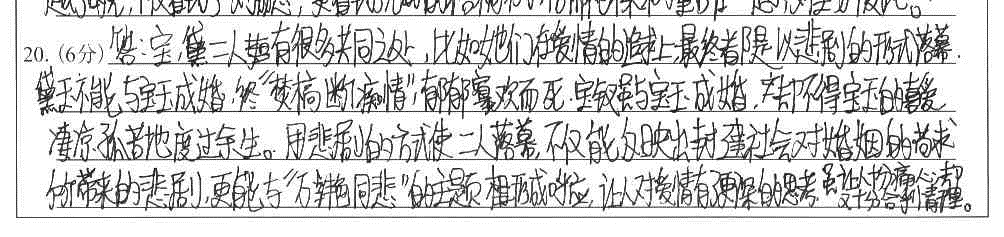 20.(6分) 答:宝,黛二人其实有很多共同之处,比如她们在爱情的道路上最终都是以悲剧的形式落幕.
黛玉不能与宝玉成婚,终“焚稿断痴情”,郁郁寡欢而死.宝钗虽与宝玉成婚,却不得宝玉的喜爱
凄凉孤苦地度过余生。用悲剧的方式使二人落幕,不仅能反映出封建社会对婚姻的苛求
所带来的悲剧,更能与“万艳同悲”的主题相形成呼应,让人对爱情有更深的思考,虽让人十分痛心,却又十分合乎情理。